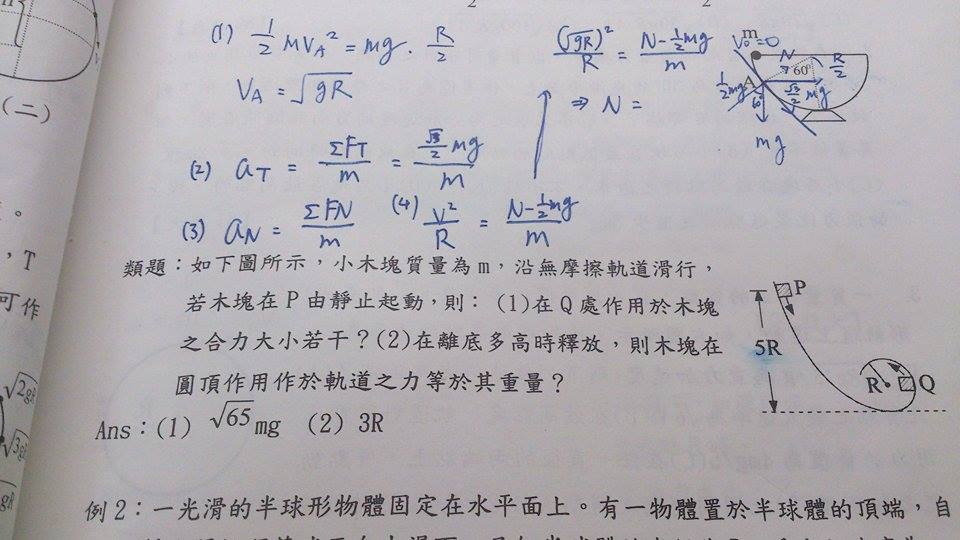 2
2
(二)
(1) 1/2 mV_A² = mg · R/2
V_A = √gR
(√gR)²/R = (N - 1/2 mg)/m
⇒ N =
(2) a_T = ΣF_T/m = (√3/2 mg)/m
(3) a_N = ΣF_N/m
(4) V²/R = (N - 1/2 mg)/m
m
V₀=0
N
60°
R/2
A
1/2 mg
60°
√3/2 mg
mg
。
，T
可作
√2gR
√3gR
gR
類題：如下圖所示，小木塊質量為 m，沿無摩擦軌道滑行，
若木塊在 P 由靜止起動，則： (1)在 Q 處作用於木塊
之合力大小若干？(2)在離底多高時釋放，則木塊在
圓頂作用作於軌道之力等於其重量？
Ans：(1) √65 mg (2) 3R
P
5R
R
Q
例 2：一光滑的半球形物體固定在水平面上。有一物體置於半球體的頂端，自